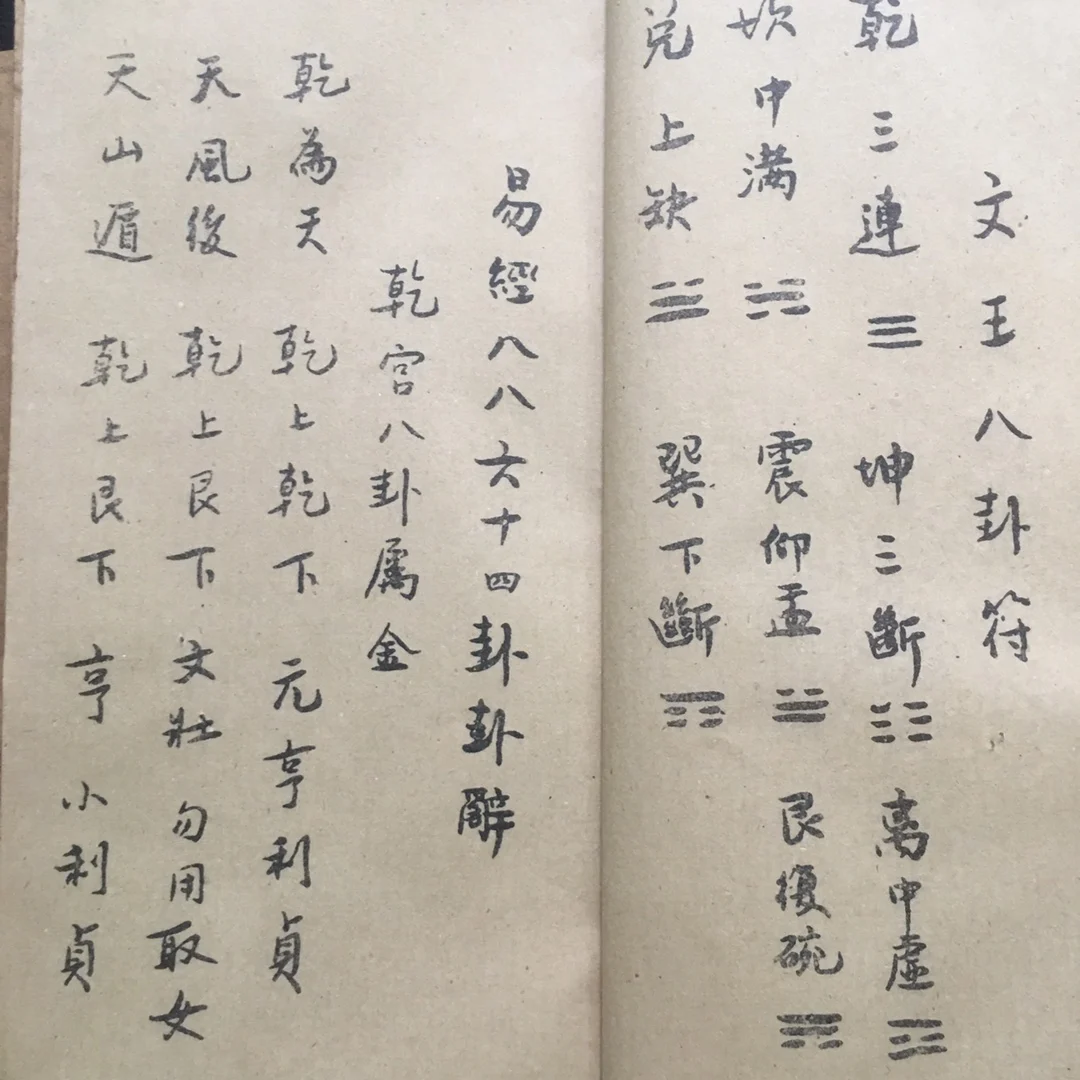 文王八卦符
乾三連☰ 坤三斷☷ 离中虛☲
坎中满☵ 震仰盂☳ 艮復碗☶
兑上缺☱ 巽下斷☴
易經八八六十四卦卦辭
乾宫八卦屬金
乾為天 乾上乾下 元亨利貞
天風後 乾上艮下 女壯 勿用取女
天山遁 乾上艮下 亨 小利貞